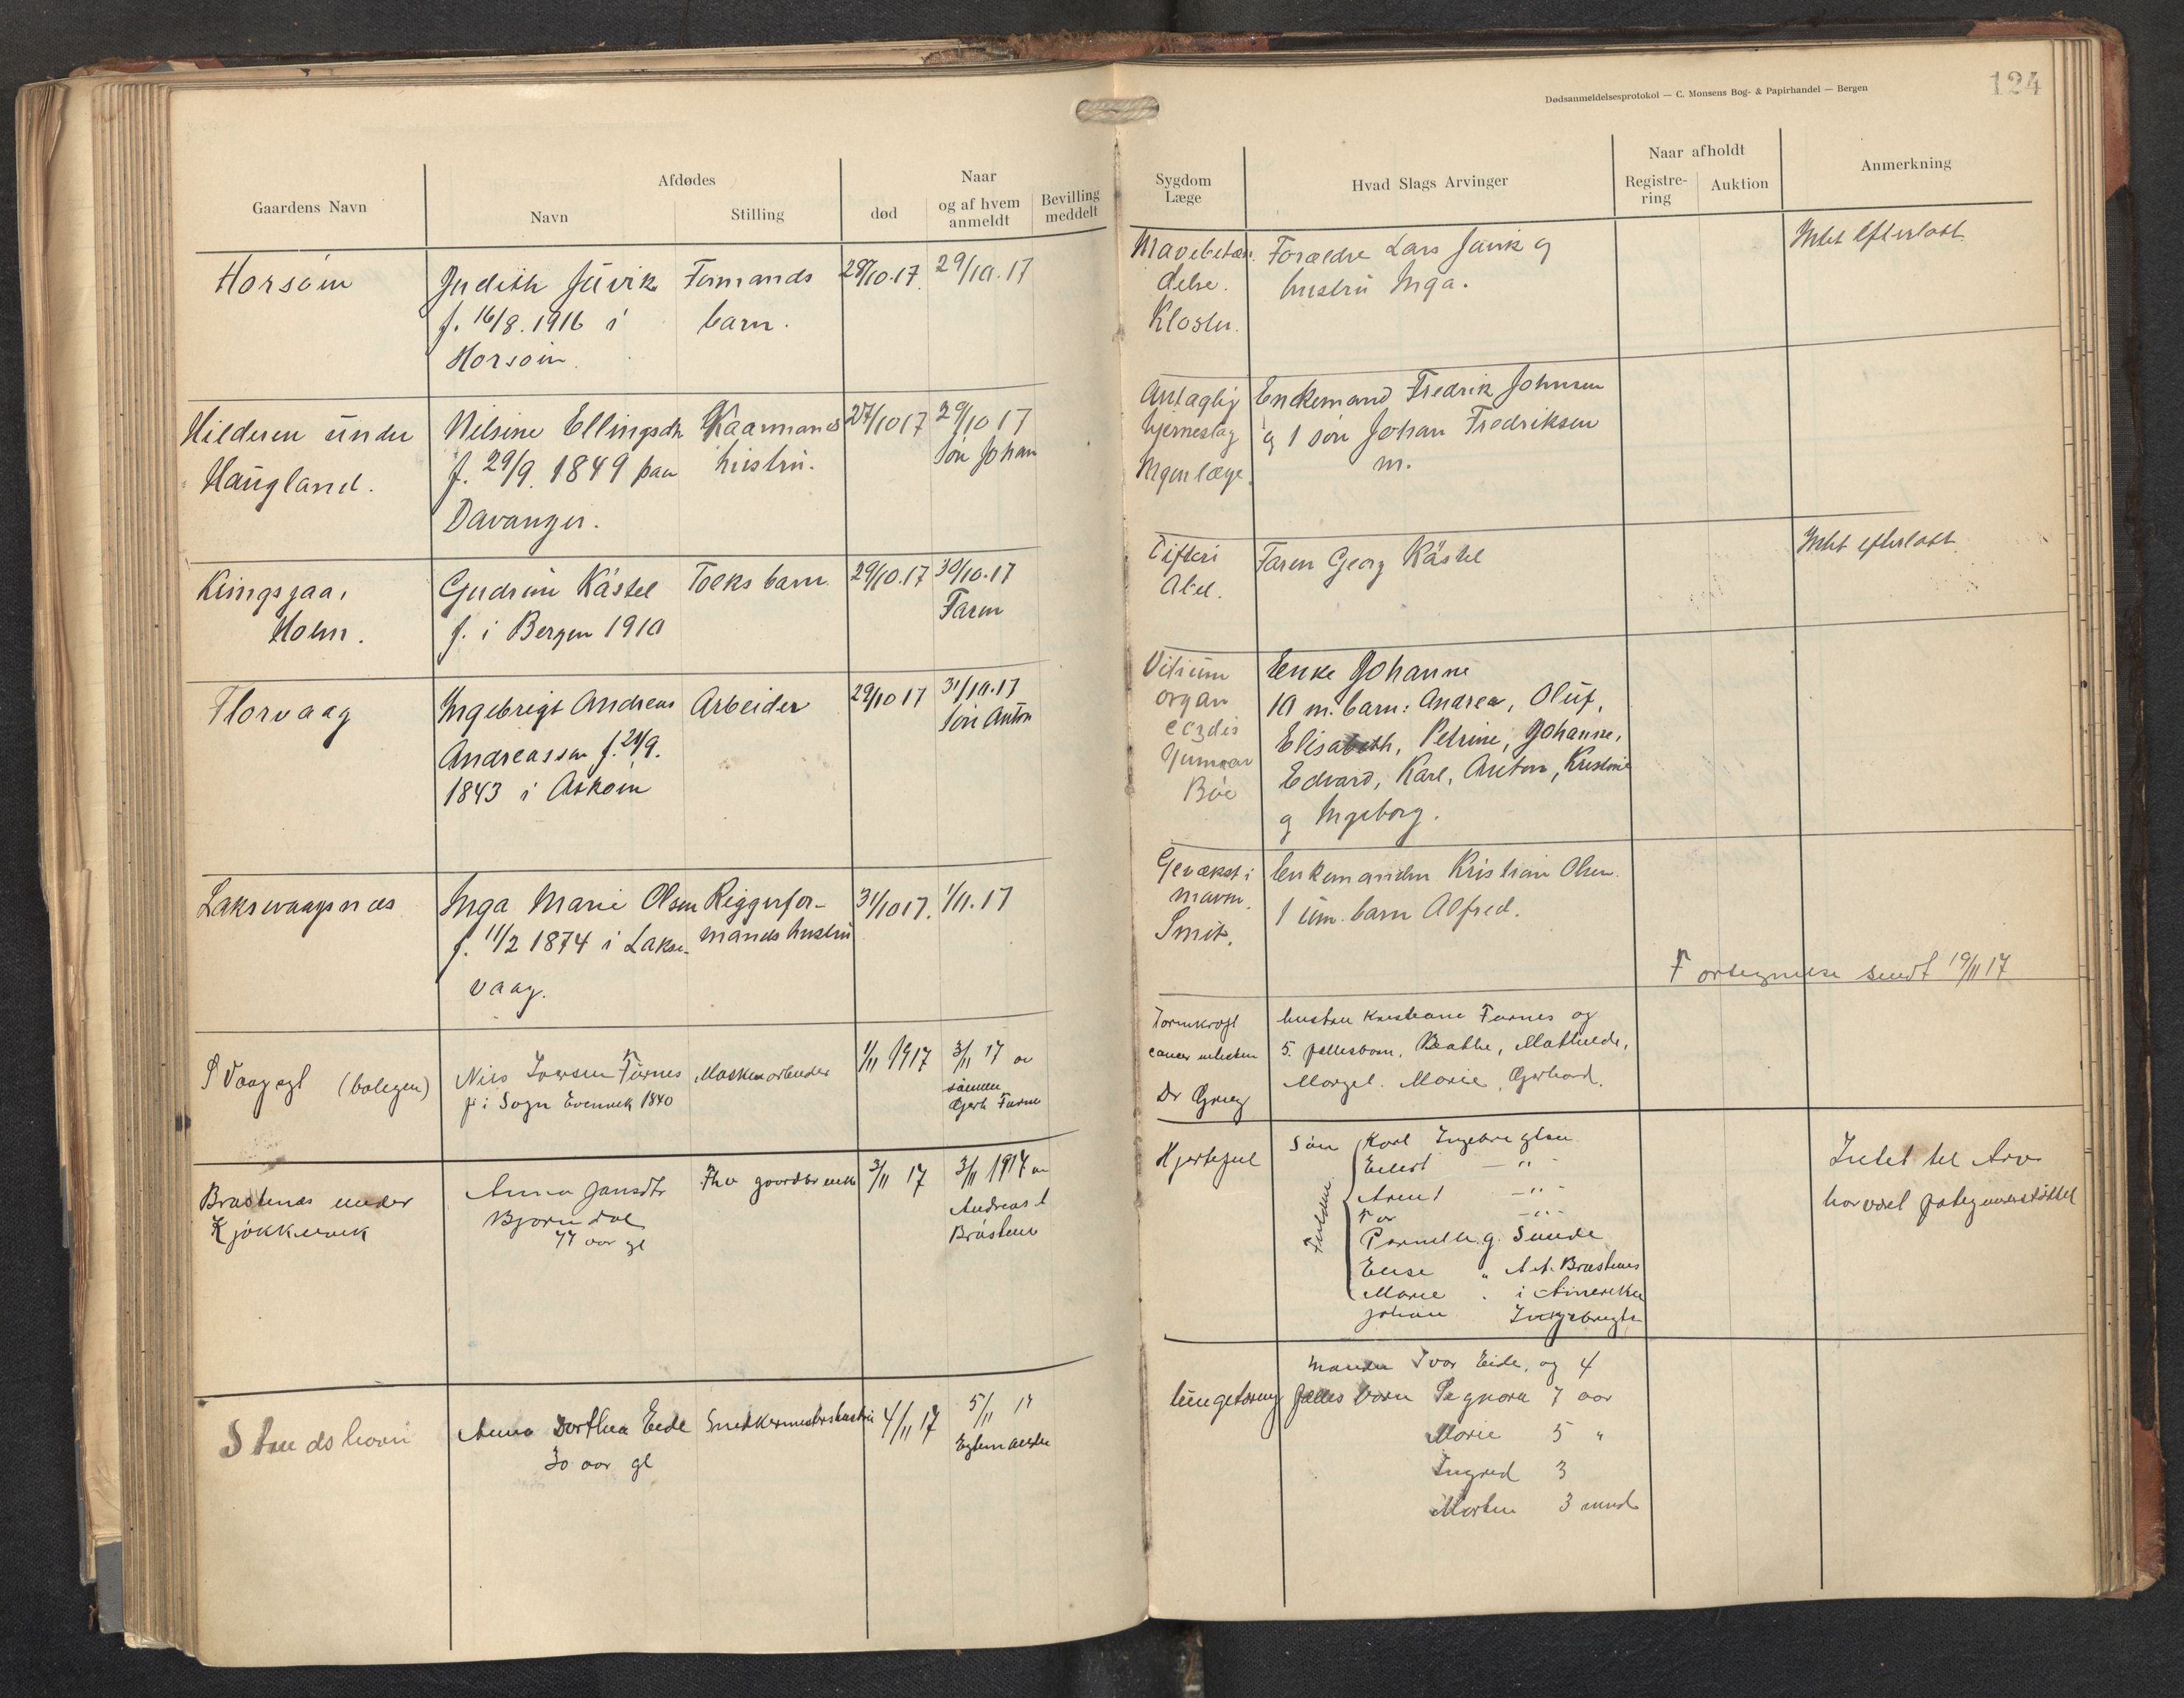 Dødsanmeldelsesprotokol — C. Monsens Bog- & Papirhandel — Bergen
124
Gaardens Navn
Afdødes
Navn
Stilling
død
Naar
og af hvem
anmeldt
Bevilling
meddelt
Sygdom
Læge
Hvad Slags Arvinger
Naar afholdt
Registre-
ring
Auktion
Anmerkning
Horsøin
Judith Juvik
f. 16/8. 1916 i
Horsøin.
Formands
barn.
28/10.17.
29/10.17
Mavebetæn-
delse.
Kloster.
Forældre Lars Juvik og
hustru Inga.
Intet efterladt.
Hilderen under
Haugland.
Nilsine Ellingsdtr
f. 29/9. 1849 paa
Davanger.
Kaarmands
hustru.
27/10 17
29/10 17
Søn Johan
Antaglig
hjerneslag
Ingen læge.
Enkemand Fredrik Johnsen
og 1 søn Johan Fredriksen
m.
Holm.
Gudrun Kästel
f. i Bergen 1910
Tolks barn.
29/10.17
30/10.17
Faren
Difteri
Abel.
Faren Georg Kästel
Intet efterladt.
Florvaag
Ingebrigt Andreas
Andreassen f. 21/9.
1843 i Askøin
Arbeider
29/10 17
31/10.17
Søn Anton
Vitium
organ
Gunnar
Bøe
Enke Johanne
10 m. barn: Andrea, Oluf,
Elisabeth, Petrine, Johanne,
Edvard, Karl, Anton, Kristine
og Ingeborg.
Laksevaagsnæs
Inga Marie Olsen
f. 11/2 1874 i Lakse-
vaag.
Riggerfor-
mands hustru
31/10 17.
1/11.17
Gevækst i
maven.
Smit.
Enkemanden Kristian Olsen.
1 um. barn Alfred.
Fortegnelse sendt 19/11 17
S Vaagsgt (boligen)
Nils Iversen Furnes
f i Sogn Evenvik 1840
Maskinarbeider
1/11 1917
3/11 17 av
sønnen
Gerh Furnes
Tarmkræft
cancer intestin
Dr Grieg
hustru Kristiane Furnes og
5. fællesbarn, Beathe, Mathilde,
Margit. Marie, Gerhard.
Brastenæs under
Kjøkkenvik
Anna Jansdtr
Bjørndal
77 aar gl
Fhv gaardbr enke
3/11 17
3/11 1917 av
Andreas A
Brastenes
Hjertefeil
Søn
Fuldm.
Karl Ingebrigtsen
Eilert — " -
Arent — " -
Per — " -
Pernille g. Sunde
Elise " A A. Brastenes
Marie " i Amerika
Johan Ingebrigts
Intet til Arv
har været fattigunderstøttet
Strudshavn
Anna Dorthea Eide
30 aar gl
Snekkermesterhustru
4/11 17
5/11 17
Egtemanden
lungetæring
manden Ivar Eide, og 4
fælles barn Ragnara 7 aar
Marie 5 "
Ingrid 3
Morten 3 mnd